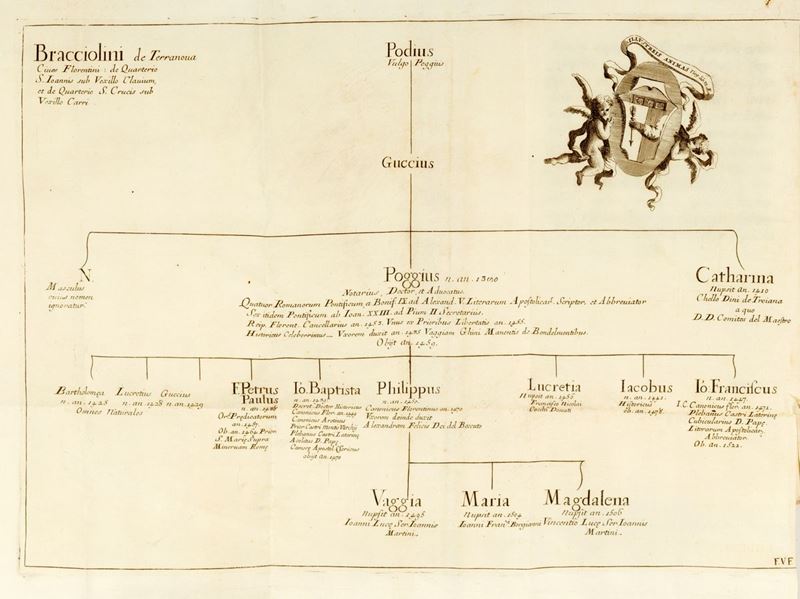 Bracciolini de Terranoua
Ciues Florentini: de Quarterio
S. Ioannis sub Vexillo Clauium,
et de Quarterio S. Crucis sub
Vexillo Carri.
Podius
Vulgo Poggius
ILLVSTREIS ANIMAS
Guccius
N
Masculus
cuius nomen
ignoratur
Poggius n. an. 1380
Notarius, Doctor, et Aduocatus.
Quatuor Romanorum Pontificum, a Bonif. IX ad Alexand. V. Literarum Apostolicar. Scriptor, et Abbreuiator
Sex itidem Pontificum ab Ioan. XXIII. ad Pium II Secretarius.
Reip. Florent. Cancellarius an. 1453. Vnus ex Prioribus Libertatis an. 1455.
Historicus Celeberrimus. Vxorem duxit an. 1435 Vaggiam Ghini Manentis de Bondelmontibus.
Obijt an. 1459.
Catharina
Nupsit an. 1410
Chello Dini de Troiana
a quo
D.D. Comites del Maestro
Bartholomea
n. an. 1425
Lucretius
n. an. 1428
Guccius
n. an. 1429
Omnes Naturales
F. Petrus
Paulus
n. an. 1438
Ord. Predicatorum
an. 1457.
Ob. an. 1464 Prior
S. Marie Supra
Mineruam Rome
Io. Baptista
n. an. 1439
Decret. Doctor Historicus
Canonicus Flor. an.
Canonicus Aretinus
Prior Castri
Plebanus Castri Latarinę
Acolitus D. Pape
Camerę Apostol. Clericus
obijt an. 1470
Philippus
n. an.
Canonicus Florentinus an. 1470
Vxorem deinde duxit
Alexandram Felicis Dei del Beccuto
Lucretia
Nupsit an.
Francisco Nicolai
Cocchi Donati
Iacobus
n. an. 1441.
Historicus
ob. an. 1478.
Io. Franciscus
n. an. 1447.
I.C. Canonicus Flor. an. 1471.
Plebanus Castri Latarinę
Cubicularius D. Papę
Literarum Apostolicar.
Abbreuiator
Ob. an. 1522.
Vaggia
Nupsit an. 1495
Ioanni Lucę Ser Ioannis
Martini.
Maria
Nupsit an. 1504
Ioanni Fran.
Magdalena
Nupsit an. 1506
Vincentio Lucę Ser Ioannis
Martini.
F.V.F.